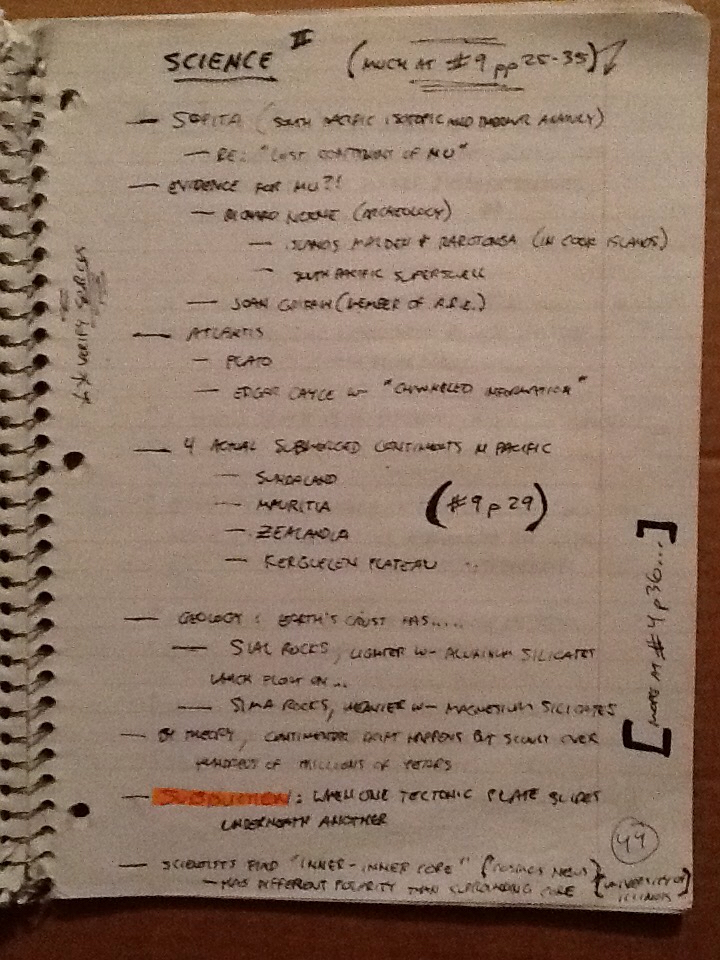 SCIENCE II (MUCH AT #9 pp 25-35)
— SOPITA (SOUTH PACIFIC ISOTOPIC AND ANOMALY)
— RE: "LOST CONTINENT OF MU"
— EVIDENCE FOR MU?!
— RICHARD (ARCHEOLOGY)
— ISLANDS MALDEN & RAROTONGA (IN COOK ISLANDS)
— SOUTH PACIFIC SUPERSWELL
— JOAN (MEMBER OF A.R.E.)
— ATLANTIS
— PLATO
— EDGAR CAYCE W— "CHANNELED INFORMATION"
** VERIFY SOURCES
— 4 ACTUAL SUBMERGED CONTINENTS IN PACIFIC
— SUNDALAND
— MAURITIA
— ZEALANDIA
— KERGUELEN PLATEAU
(#9 p 29)
— GEOLOGY: EARTH'S CRUST HAS.....
— SIAL ROCKS, LIGHTER W— ALUMINUM SILICATES
WHICH FLOAT ON...
— SIMA ROCKS, HEAVIER W— MAGNESIUM SILICATES
[MORE AT #4 p 36...]
— BY THEORY, CONTINENTAL DRIFT HAPPENS BUT SLOWLY OVER
HUNDREDS OF MILLIONS OF YEARS
— SUBDUCTION: WHEN ONE TECTONIC PLATE SLIDES
UNDERNEATH ANOTHER
— SCIENTISTS FIND "INNER-INNER CORE" {NEWS} {UNIVERSITY OF ILLINOIS}
— HAS DIFFERENT POLARITY THAN SURROUNDING CORE
49